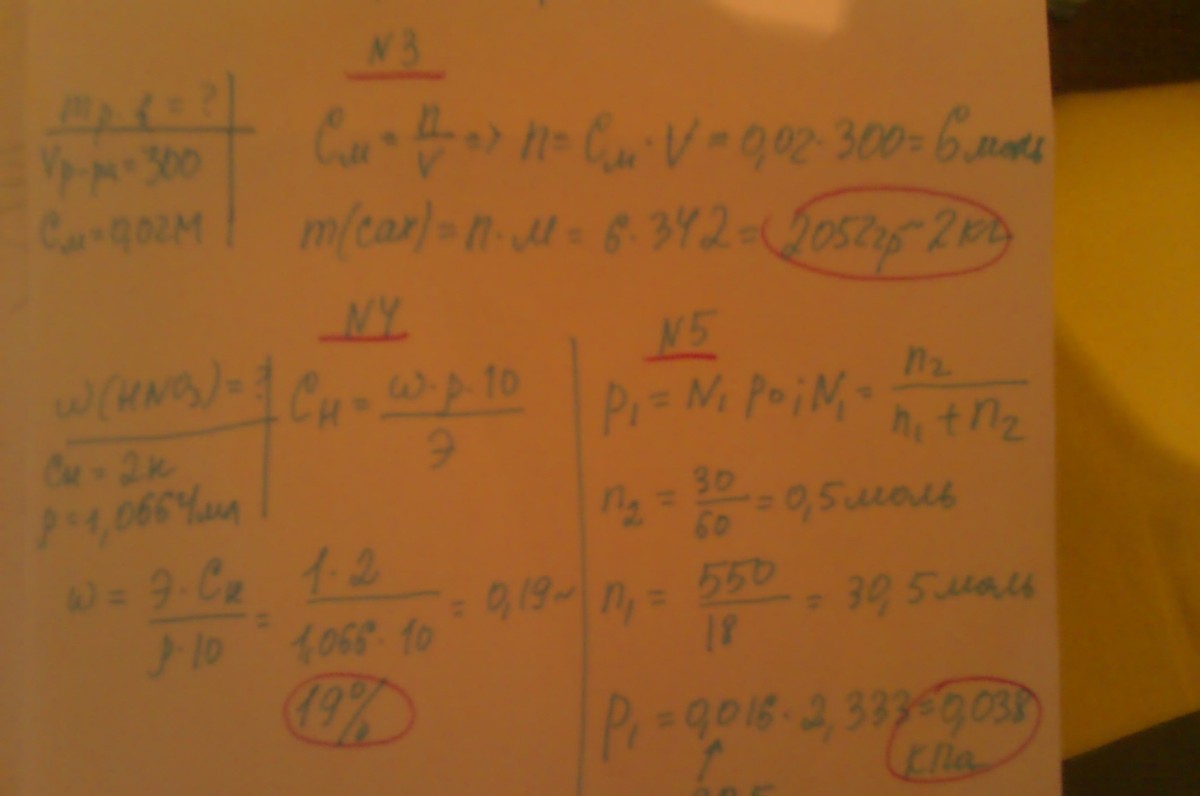 N3
m р.в = ?
Vр-ра = 300
Cм = 0,02М
Cм = n/V => n = Cм · V = 0,02 · 300 = 6 моль
m(сах) = n · M = 6 · 342 = 2052гр ~ 2кг
N4
ω(HNO3) = ?
Cн = 2н
ρ = 1,0664мл
Cн = ω · ρ · 10 / Э
ω = Э · Cн / ρ · 10 = 1 · 2 / 1,066 · 10 = 0,19 ~
19%
N5
p1 = N1 p0 ; N1 = n2 / n1 + n2
n2 = 30/60 = 0,5 моль
n1 = 550/18 = 30,5 моль
p1 = 0,016 · 2,333 = 0,038
кПа